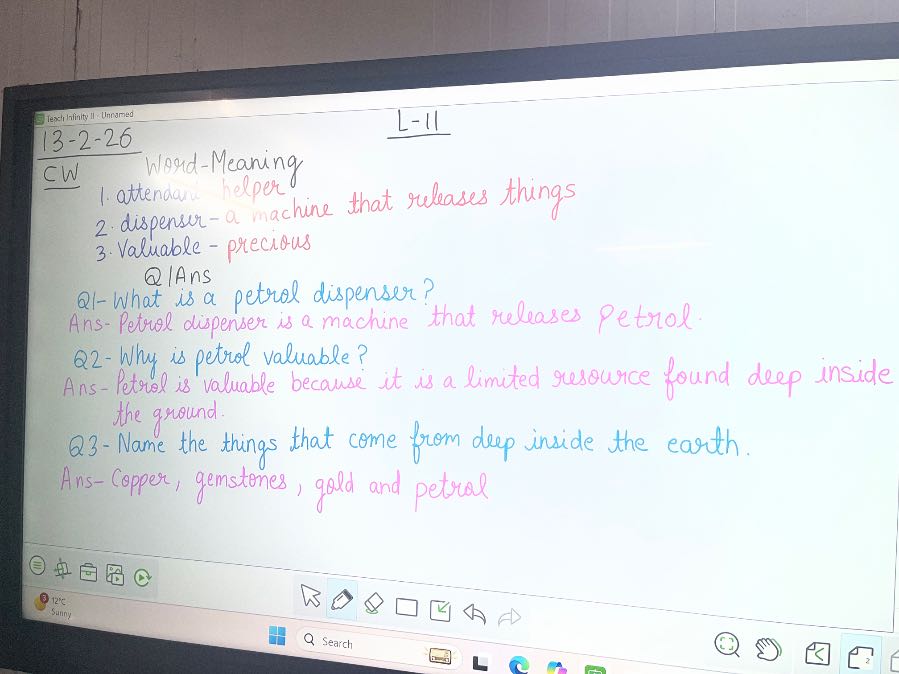 Teach Infinity II - Unnamed
13-2-26
L-11
CW
Word-Meaning
1. attendant helper
2. dispenser - a machine that releases things
3. Valuable - precious
Q/Ans
Q1- What is a petrol dispenser?
Ans- Petrol dispenser is a machine that releases Petrol.
Q2- Why is petrol valuable?
Ans- Petrol is valuable because it is a limited resource found deep inside
the ground.
Q3- Name the things that come from deep inside the earth.
Ans- Copper, gemstones, gold and petrol
3
12°C
Sunny
Search
2